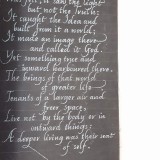 it saw the light
but not the Truth:
It caught the Idea and
built from it a world;
It made an Image there
and called it God.
Yet something true and
inward harboured there:
The beings of that world
of greater life
Tenants of a larger air and
freer space,
Live not by the body or in
outward things:
A deeper living was their seat
of self.